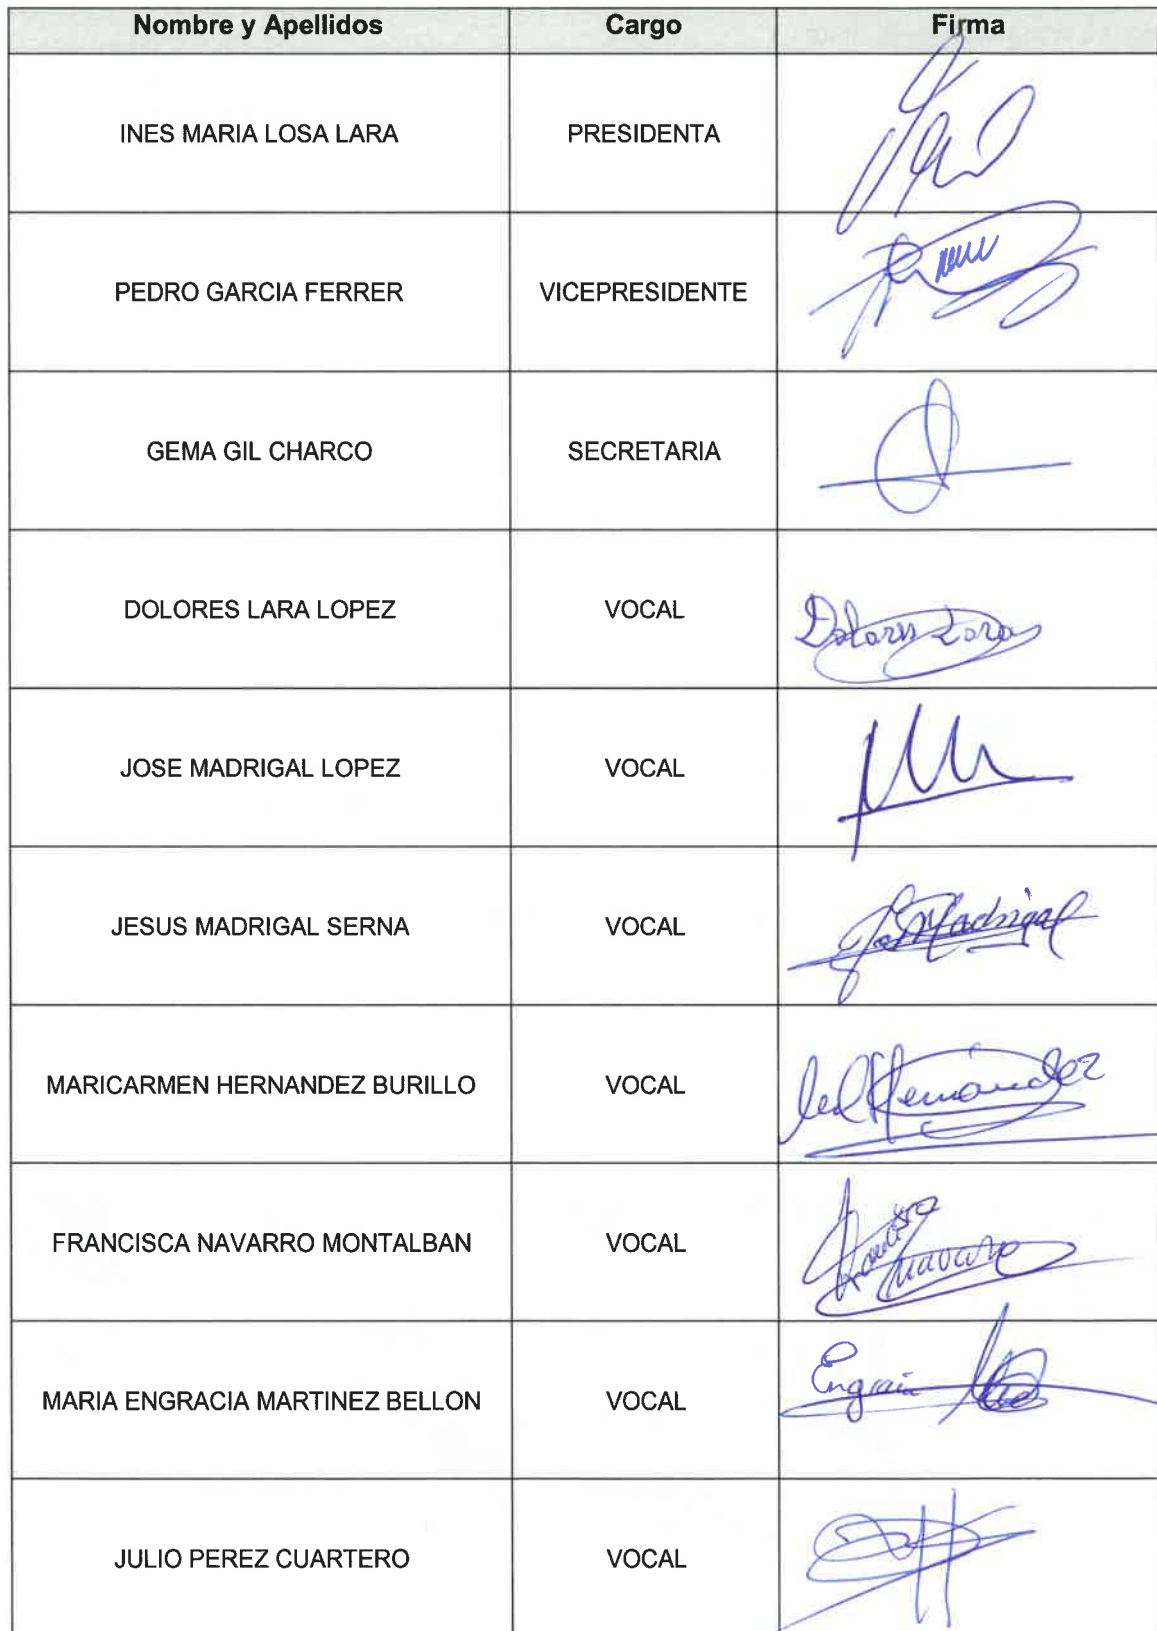 Nombre y Apellidos Cargo Firma
INES MARIA LOSA LARA PRESIDENTA
PEDRO GARCIA FERRER VICEPRESIDENTE
GEMA GIL CHARCO SECRETARIA
DOLORES LARA LOPEZ VOCAL Dolores Lara
JOSE MADRIGAL LOPEZ VOCAL
JESUS MADRIGAL SERNA VOCAL Madrigal
MARICARMEN HERNANDEZ BURILLO VOCAL Hernández
FRANCISCA NAVARRO MONTALBAN VOCAL Navarro
MARIA ENGRACIA MARTINEZ BELLON VOCAL Engracia
JULIO PEREZ CUARTERO VOCAL